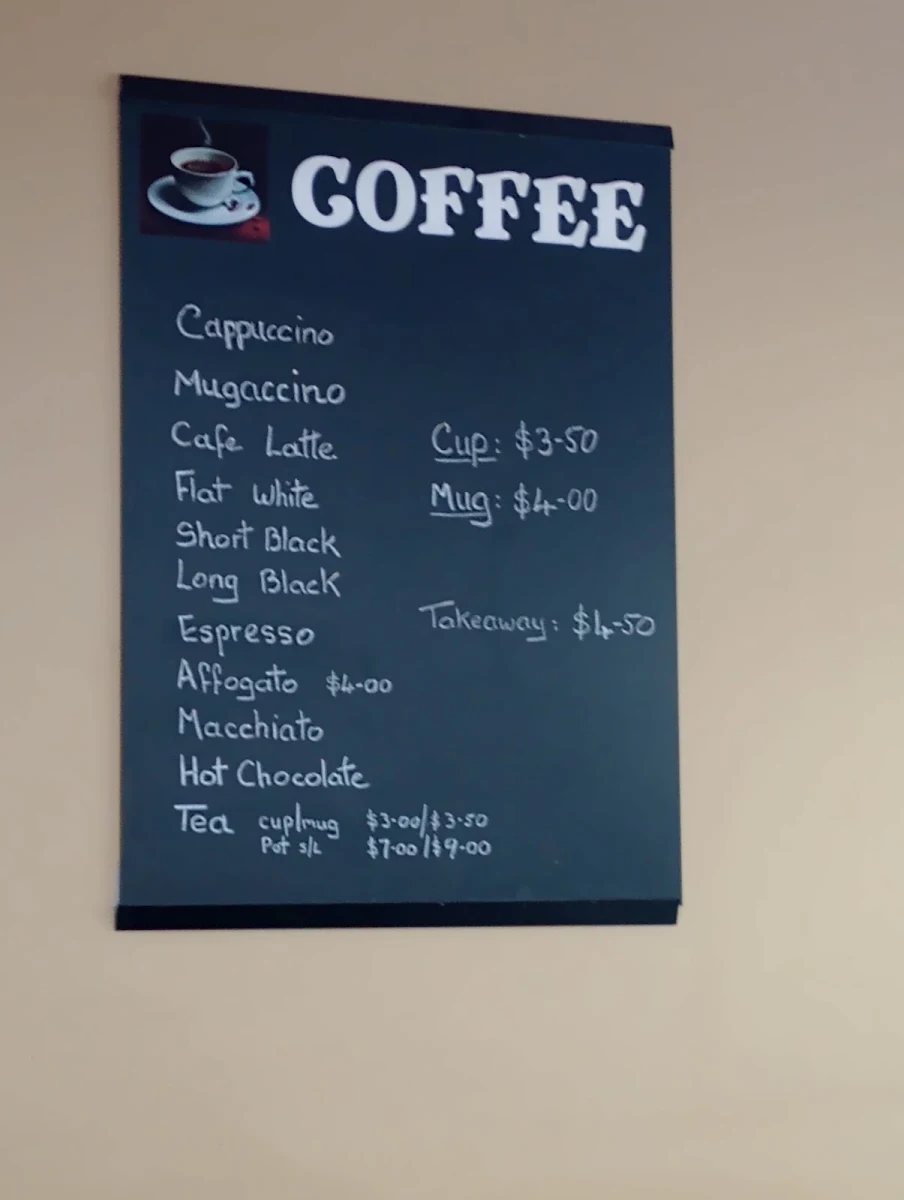 COFFEE
Cappuccino
Mugaccino
Cafe Latte
Cup: $3-50
Flat White
Mug: $4-00
Short Black
Long Black
Takeaway: $4-50
Espresso
Affogato $4-00
Macchiato
Hot Chocolate
Tea cup/mug $3-00/$3-50
Pot s/L $7-00/$9-00